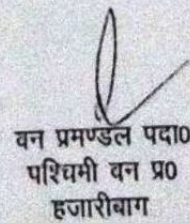 वन प्रमण्डल पदा०
पश्चिमी वन प्र०
हजारीबाग